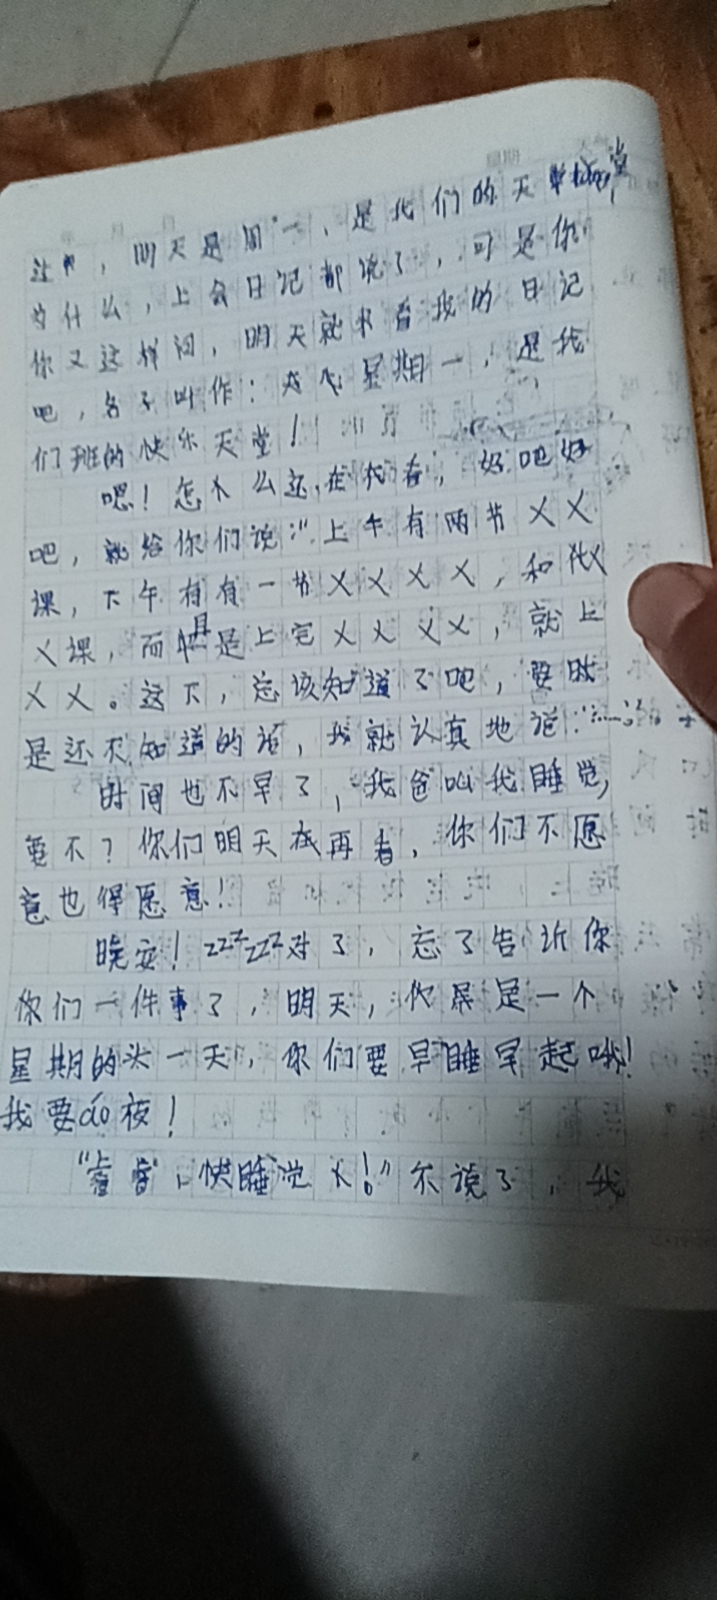 过的，明天是周一，是我们的天堂，
为什么，上会日记都说了，可是你
你又这样问，明天就来看我的日记
吧，名子叫作：星期一，是我
们班的快乐天堂！
嗯！怎么还在看，好吧好
吧，就给你们说："上午有两节XX
课，下午有有一节XXXX，和XX
X课，而且是上完XXXX，就上
XX。这下，总该知道了吧，要时
是还不知道的话，我就认真地说："……"
时间也不早了，我爸叫我睡觉，
要不？你们明天在再看，你们不愿
意也得愿意！
晚安！zzzzzz对了，忘了告诉你
你们一件事了，明天，是一个
星期的头一天，你们要早睡早起哦！
我要áo夜！
"，快睡觉！"不说了，我